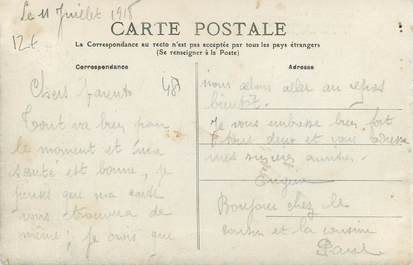 Le 11 Juillet 1915
12€
CARTE POSTALE
La Correspondance au recto n'est pas acceptée par tous les pays étrangers
(Se renseigner à la Poste)
Correspondance
Chers Parents
48
Tout va bien pour
le moment et ma
santé est bonne, je
pense que ma carte
vous trouvera de
même; je crois que
Adresse
nous allons aller au repos
bientôt.
Je vous embrasse bien fort
tous deux et vous adresse
mes sincères amitiés.
Eugène
Bonjour chez le
cousin et la cousine
Paul